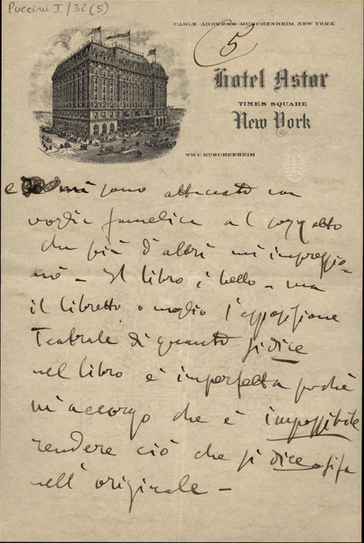 Puccini I/32(5)
CABLE ADDRESS-MUSCHENHEIM, NEW YORK
5
Hotel Astor
TIMES SQUARE
New York
WM C MUSCHENHEIM
e mi sono attaccato con
voglia famelica al soggetto
che più d'altri mi impressio-
nò - Il libro è bello - ma
il libretto o meglio l'apposizione
Teatrale di quanto si dice
nel libro è imperfetta poichè
m'accorgo che è impossibile
rendere ciò che si dice
nell'originale -